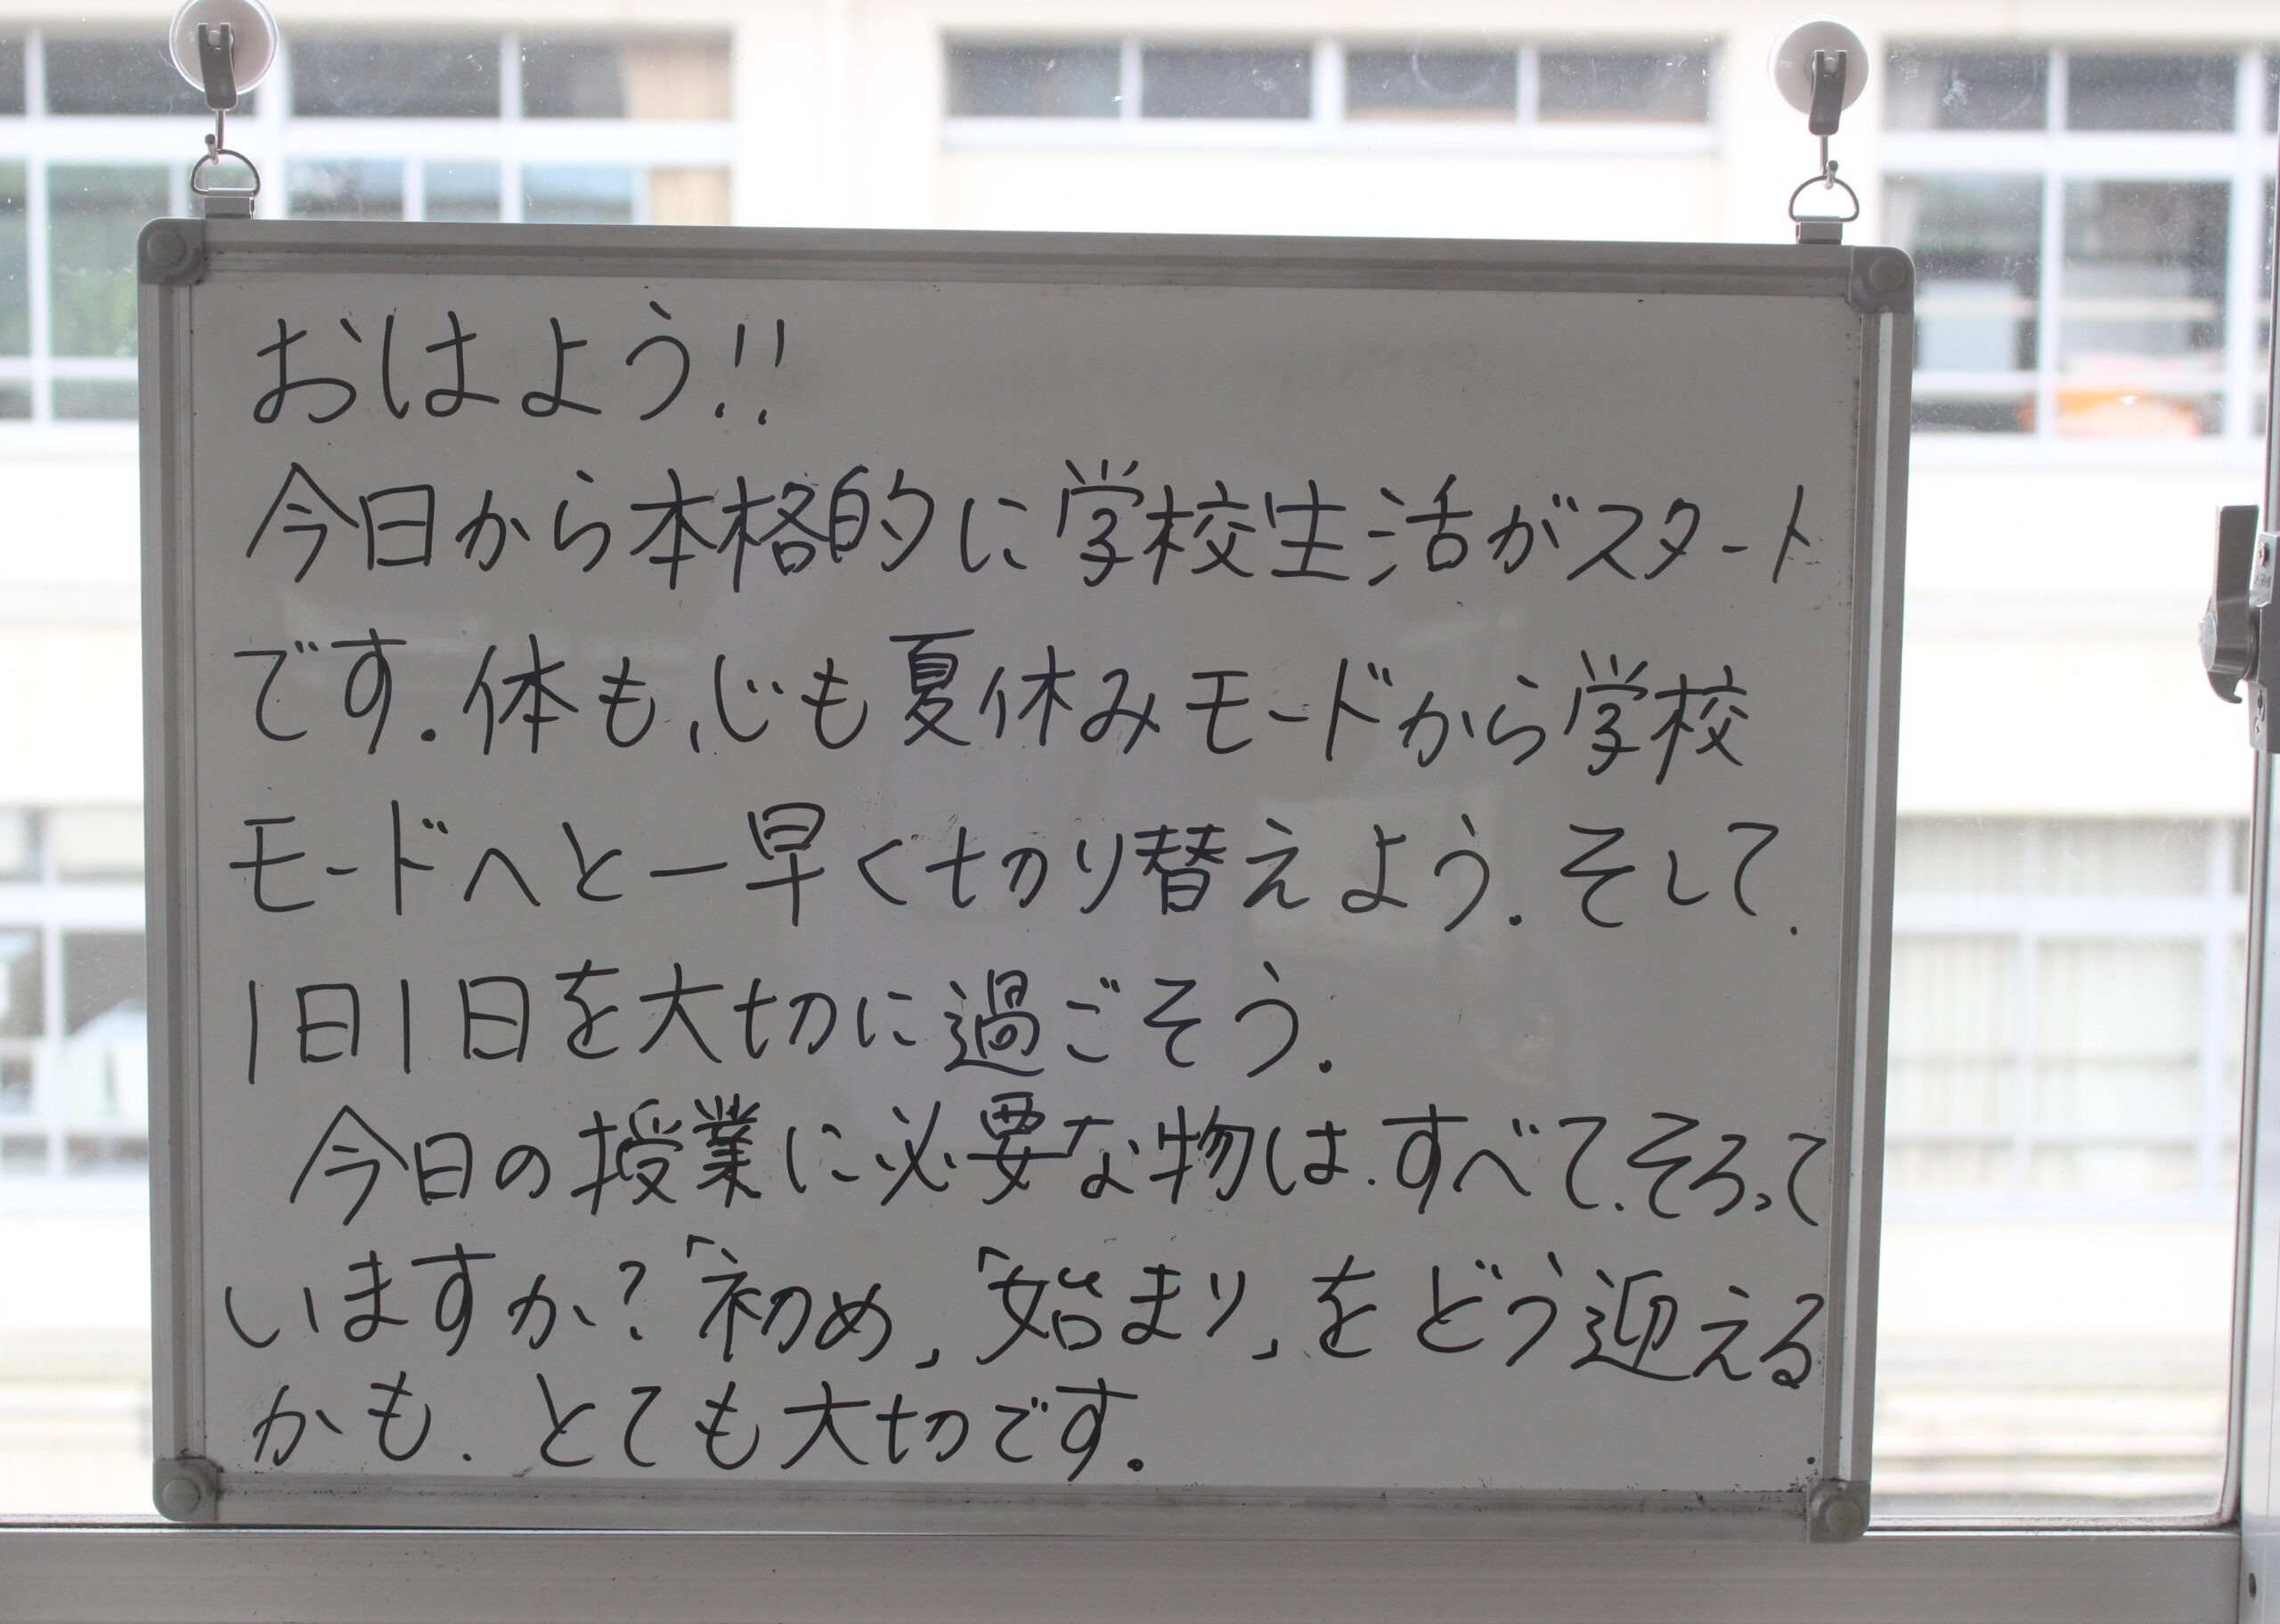 おはよう!!
今日から本格的に学校生活がスタート
です.体も心も夏休みモードから学校
モードへと一早く切り替えよう.そして.
1日1日を大切に過ごそう.
今日の授業に必要な物は.すべて.そろって
いますか?「初め」「始まり」をどう迎える
かも.とても大切です.